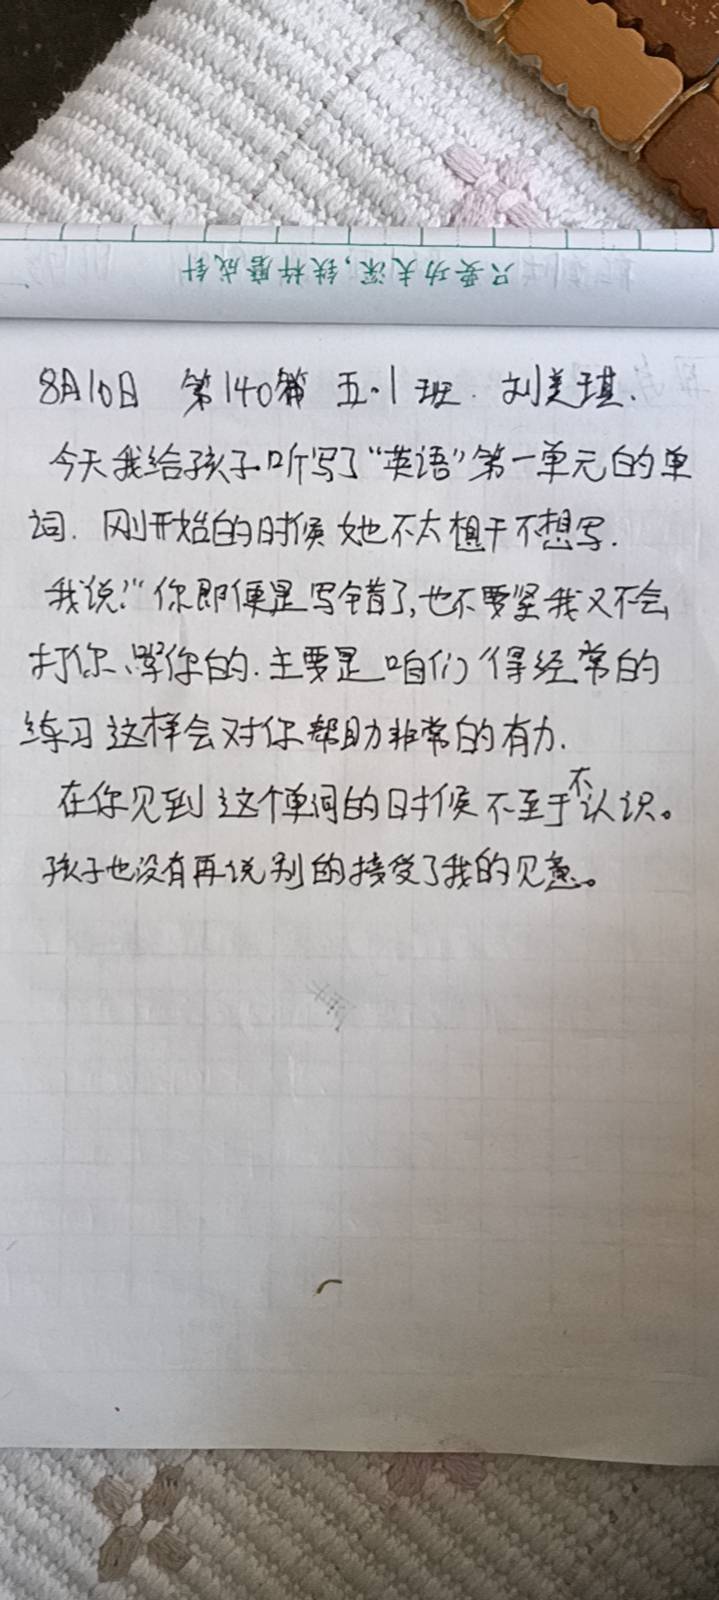 只要功夫深，铁杵磨成针
8月10日 第140篇 五.1班. 刘美琪.
今天我给孩子听写了“英语”第一单元的单
词. 刚开始的时候她不太想干不想写.
我说:“你即便是写错了,也不要紧我又不会
打你、骂你的.主要是咱们得经常的
练习这样会对你帮助非常的有力.
在你见到这个单词的时候不至于不认识。
孩子也没有再说别的接受了我的见意。